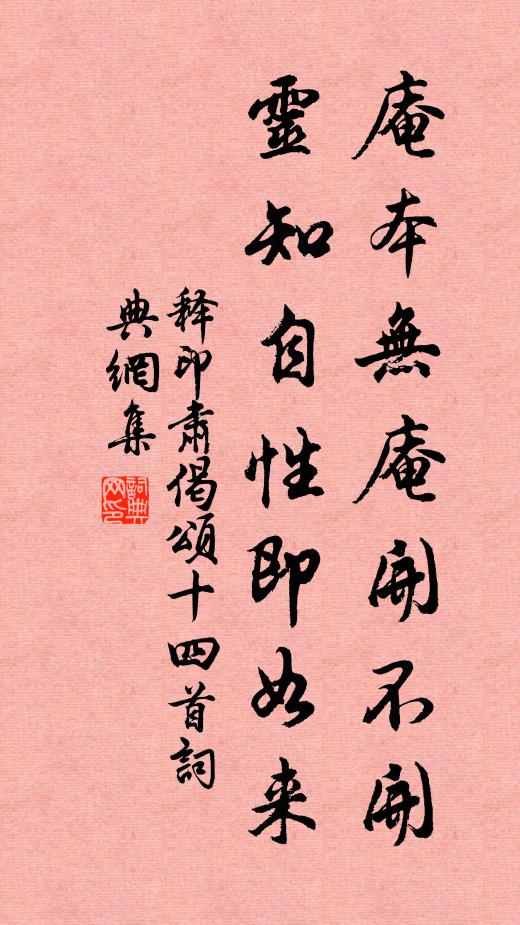 庵本無庵開不開
靈知自性即如来
释印肃偈頌十四首詞
典網集
詞典網印